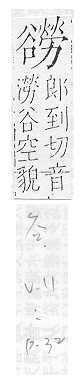 郎到切音
澇谷空貌
谷
U-11
:
p.32